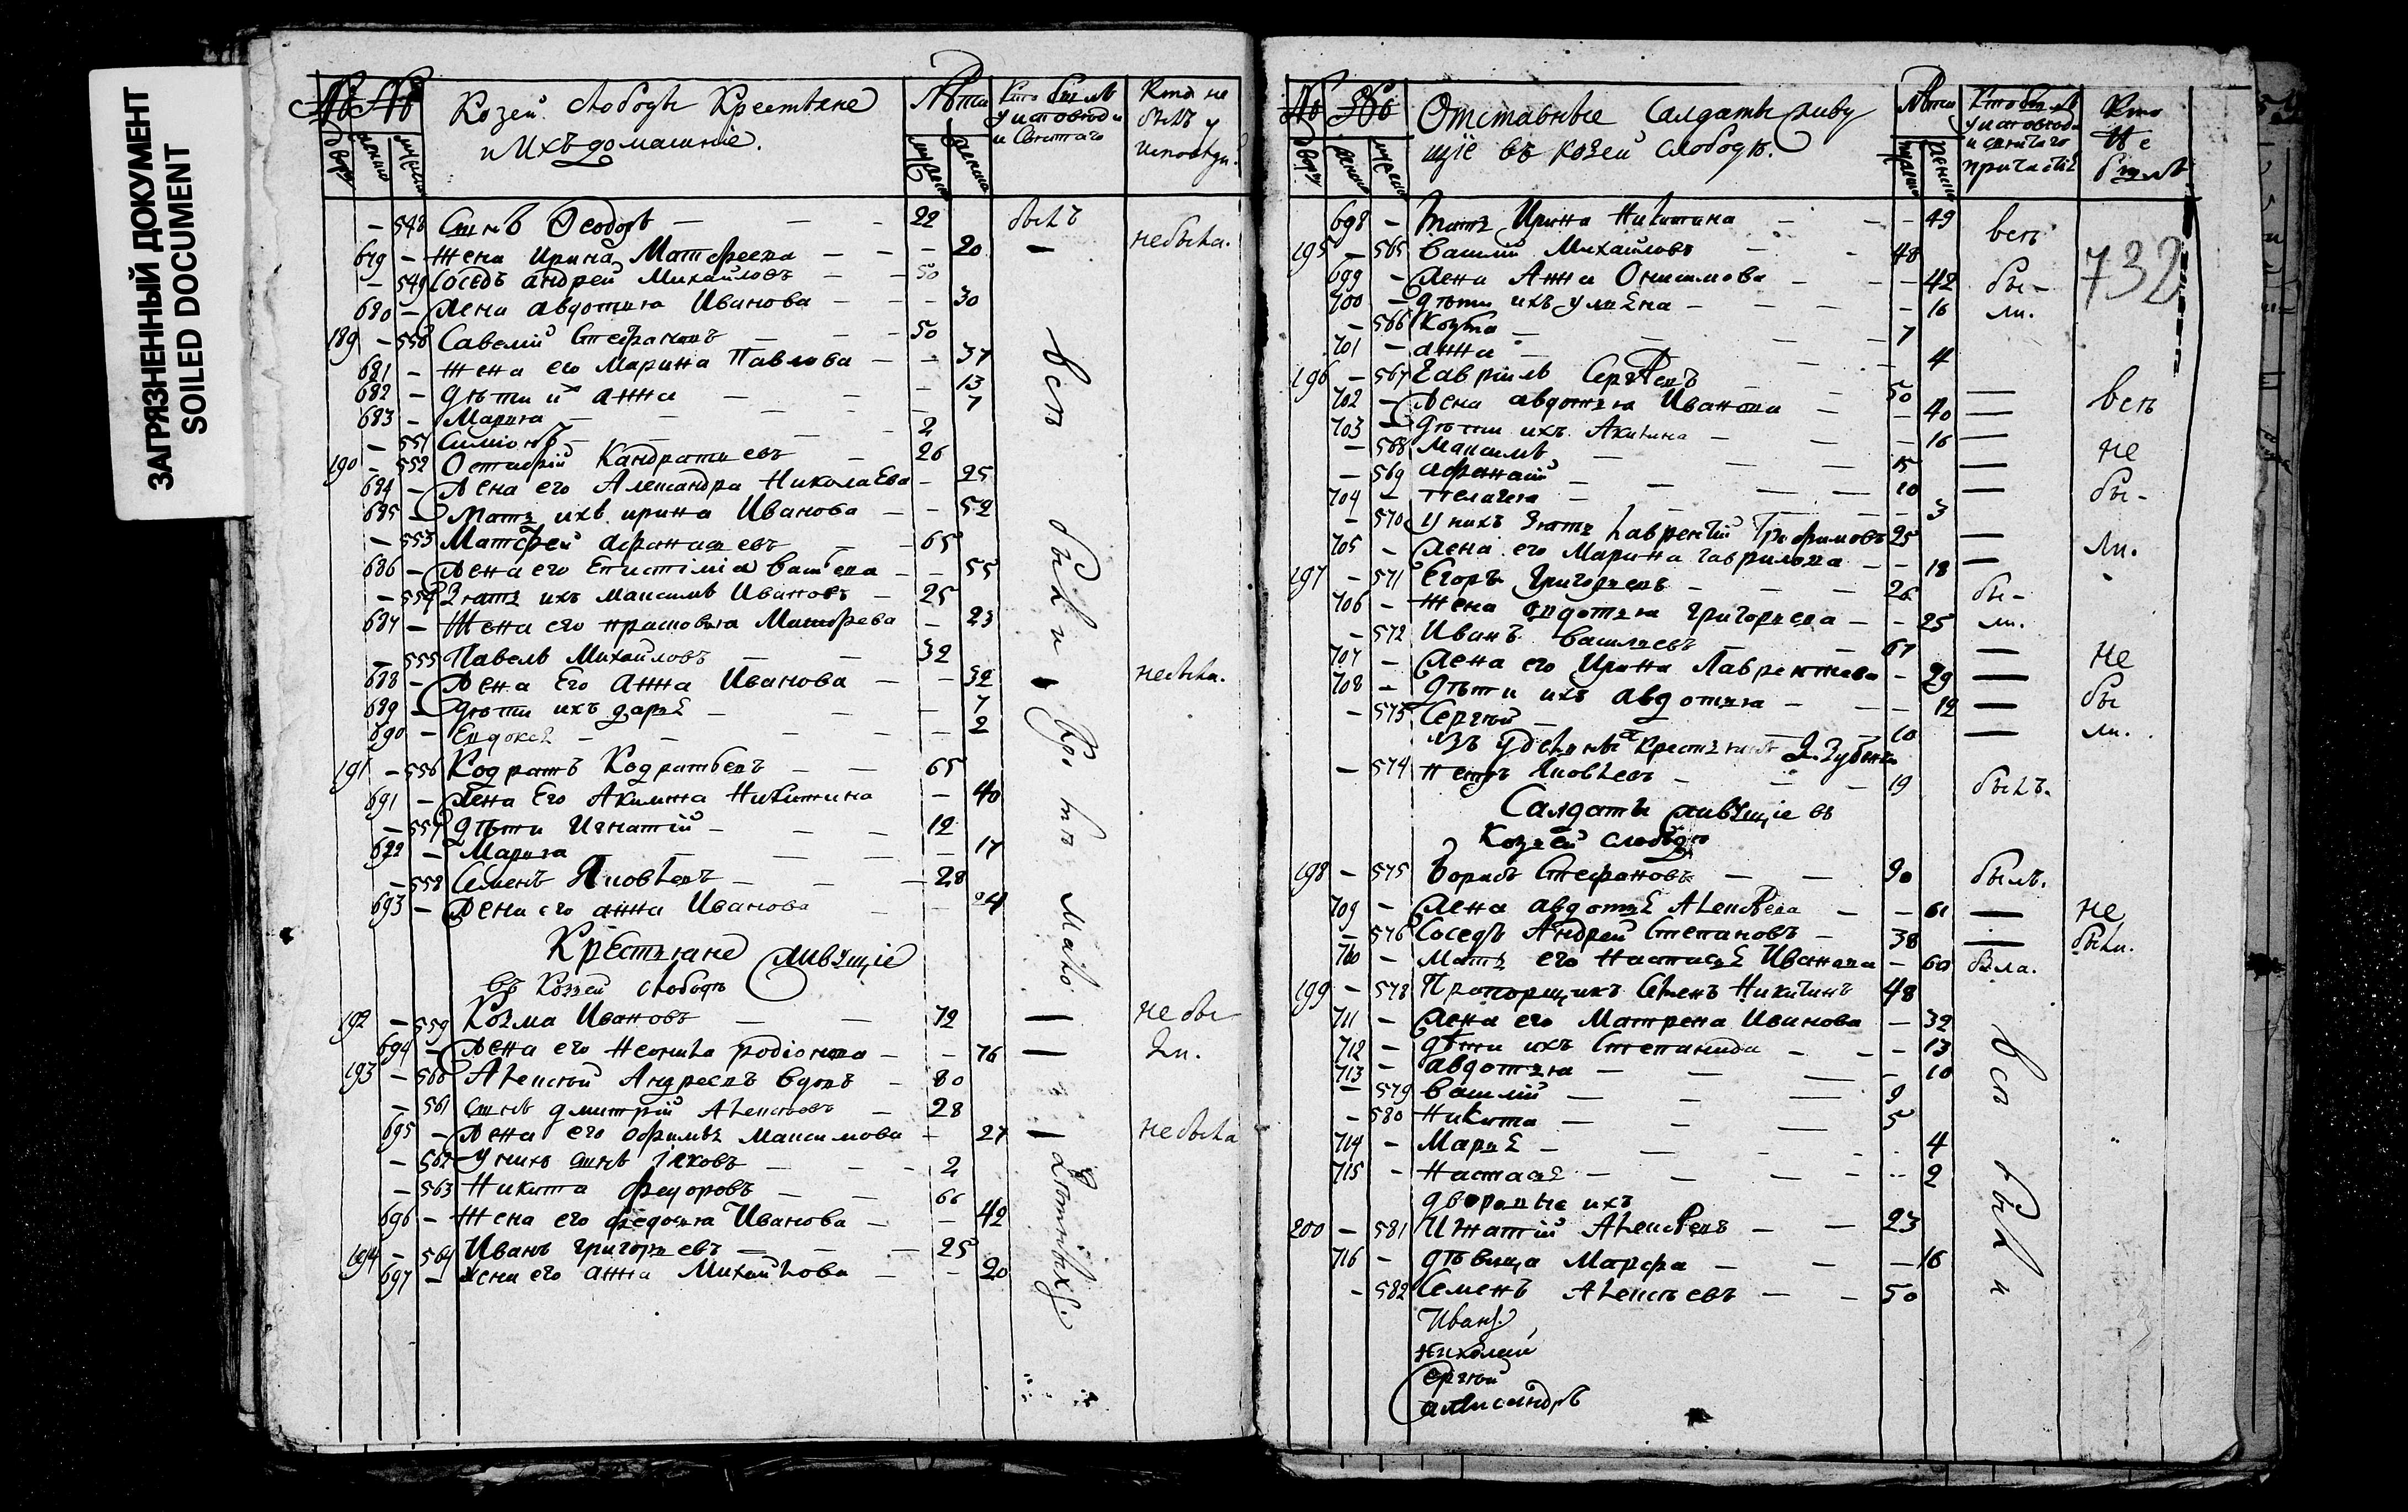 ЗАГРЯЗНЕННЫЙ ДОКУМЕНТ
SOILED DOCUMENT
№ № Козей слободы Крестьяне Лѣта Кто былъ Кто не
и ихъ домашніе. у исповѣди былъ у
и святаго исповѣди
— 548 Сынъ Ѳеодоръ — — — 22 былъ
679 — жена Ирина Матѳеева — — — 20 — небыла.
— 549 Сосѣдъ андрей Михайловъ — — 50
680 — жена авдотья Иванова — — — 30
189 — 550 Савелий Стефановъ — — — 50
681 — жена его Марина Павлова — — 37
682 — дѣти ихъ анна — — — 13
683 — Марья — — — 7
— 551 Симіонъ — — — 2
190 — 552 Остафій Кандратьевъ — 26
684 — жена его Александра НиколаЕва — 25
685 — мать ихъ ирина Иванова — — 52
— 553 Матѳей афанасьевъ — — 65
686 — жена его Епистіміа васильева — — 55
— 554 Зять ихъ максимъ Ивановъ — 25
687 — Жена его прасковья Матѳеева — 23
— 555 Павелъ Михайловъ — — 32
688 — жена Его анна Иванова — — 32 небыла.
689 — дѣти ихъ дарья — — — 7
690 — Евдокея — — — — 2
191 — 556 Кодратъ Кодратьевъ — — 65
691 — жена Его Акилина Никитина — 40
— 557 дѣти Игнатій — — — 12
692 — Марья — — — — 17
— 558 Семенъ Яковлевъ — — — 28
693 — жена его анна Иванова — — 24
всѣ были
Крестьяне живущіе
въ Козьей слободѣ
192 — 559 Козма Ивановъ — — 72 — не бы
694 — жена его Неонила родіонова — — 76 — ли.
193 — 560 Алексѣй Андреевъ вдовъ — 80
— 561 сынъ дмитрій Алексѣевъ — 28
695 — жена его Максимова — 27 — небыла
— 562 у нихъ сынъ Іаковъ — — — 2
— 563 Никита федоровъ — — 66
696 — жена его федосья Иванова — — 42
194 — 564 Иванъ григорьевъ — — — 25
697 — жена его анна Михайлова — — 20
№ № Отставные Салдаты живу Лѣта Кто былъ Кто
щіе въ козей слободѣ. у исповѣди не
и святаго былъ
причастіЯ
732
698 — мать Ирина Никитина — — — 49
195 — 565 василий Михайловъ — — 48 всѣ
699 — жена Анна Онисимова — — — 42 бы-
700 — дѣти ихъ улиЯна — — 16 ли.
— 566 Козма — — — 7
701 — анна — — — 4
196 — 567 Гавріилъ Сергѣевъ — — 50 —
702 — жена авдотья Иванова — — 40 — всѣ
703 — дѣти ихъ Акилина — — — 16 —
— 568 Максимъ — — — 15 — не
— 569 афанасій — — — 10 — бы-
704 — пелагея — — — 3
— 570 у нихъ Зять лаврентій Трофимовъ 25 —
705 — жена его Марина гаврилова — — 18 — ли.
197 — 571 Егоръ григорьевъ — — — 26 бы-
706 — жена авдотья григорьева — — 25 ли.
— 572 Иванъ васильевъ — — 67 —
707 — жена его Ирина Лаврентьева — 29 — не
708 — дѣти ихъ авдотья — — — 12 — бы
— 573 Сергѣй — — — 10 — ли.
изъ удѣльныхъ крестьянъ
— 574 петръ Яковлевъ — — — 19 былъ.
Салдаты живущіе въ
Козьей слободѣ
198 — 575 борисъ Стефановъ — — 90 былъ.
709 — жена авдотьЯ Алексѣева — — 61 — не
— 576 Сосѣдъ Андрей Степановъ — 38 — были.
710 — мать его НастасьЯ Иванова — 60 была.
199 — 578 Прапорщикъ Семенъ Никитинъ 48
711 — жена его Матрена Иванова — 32
712 — дѣти ихъ Степанида — — — 13
713 — авдотья — — — 10
— 579 василій — — — 9
— 580 Никита — — — 5
714 — МарьЯ — — — 4
715 — НастасьЯ — — — 2
дворовые ихъ
200 — 581 Игнатій Алексѣевъ — — 23
716 — дѣвица Марфа — — — 16
— 582 Семенъ Алексѣевъ — — 50
всѣ были
Иванъ
николай
Сергѣй
александръ